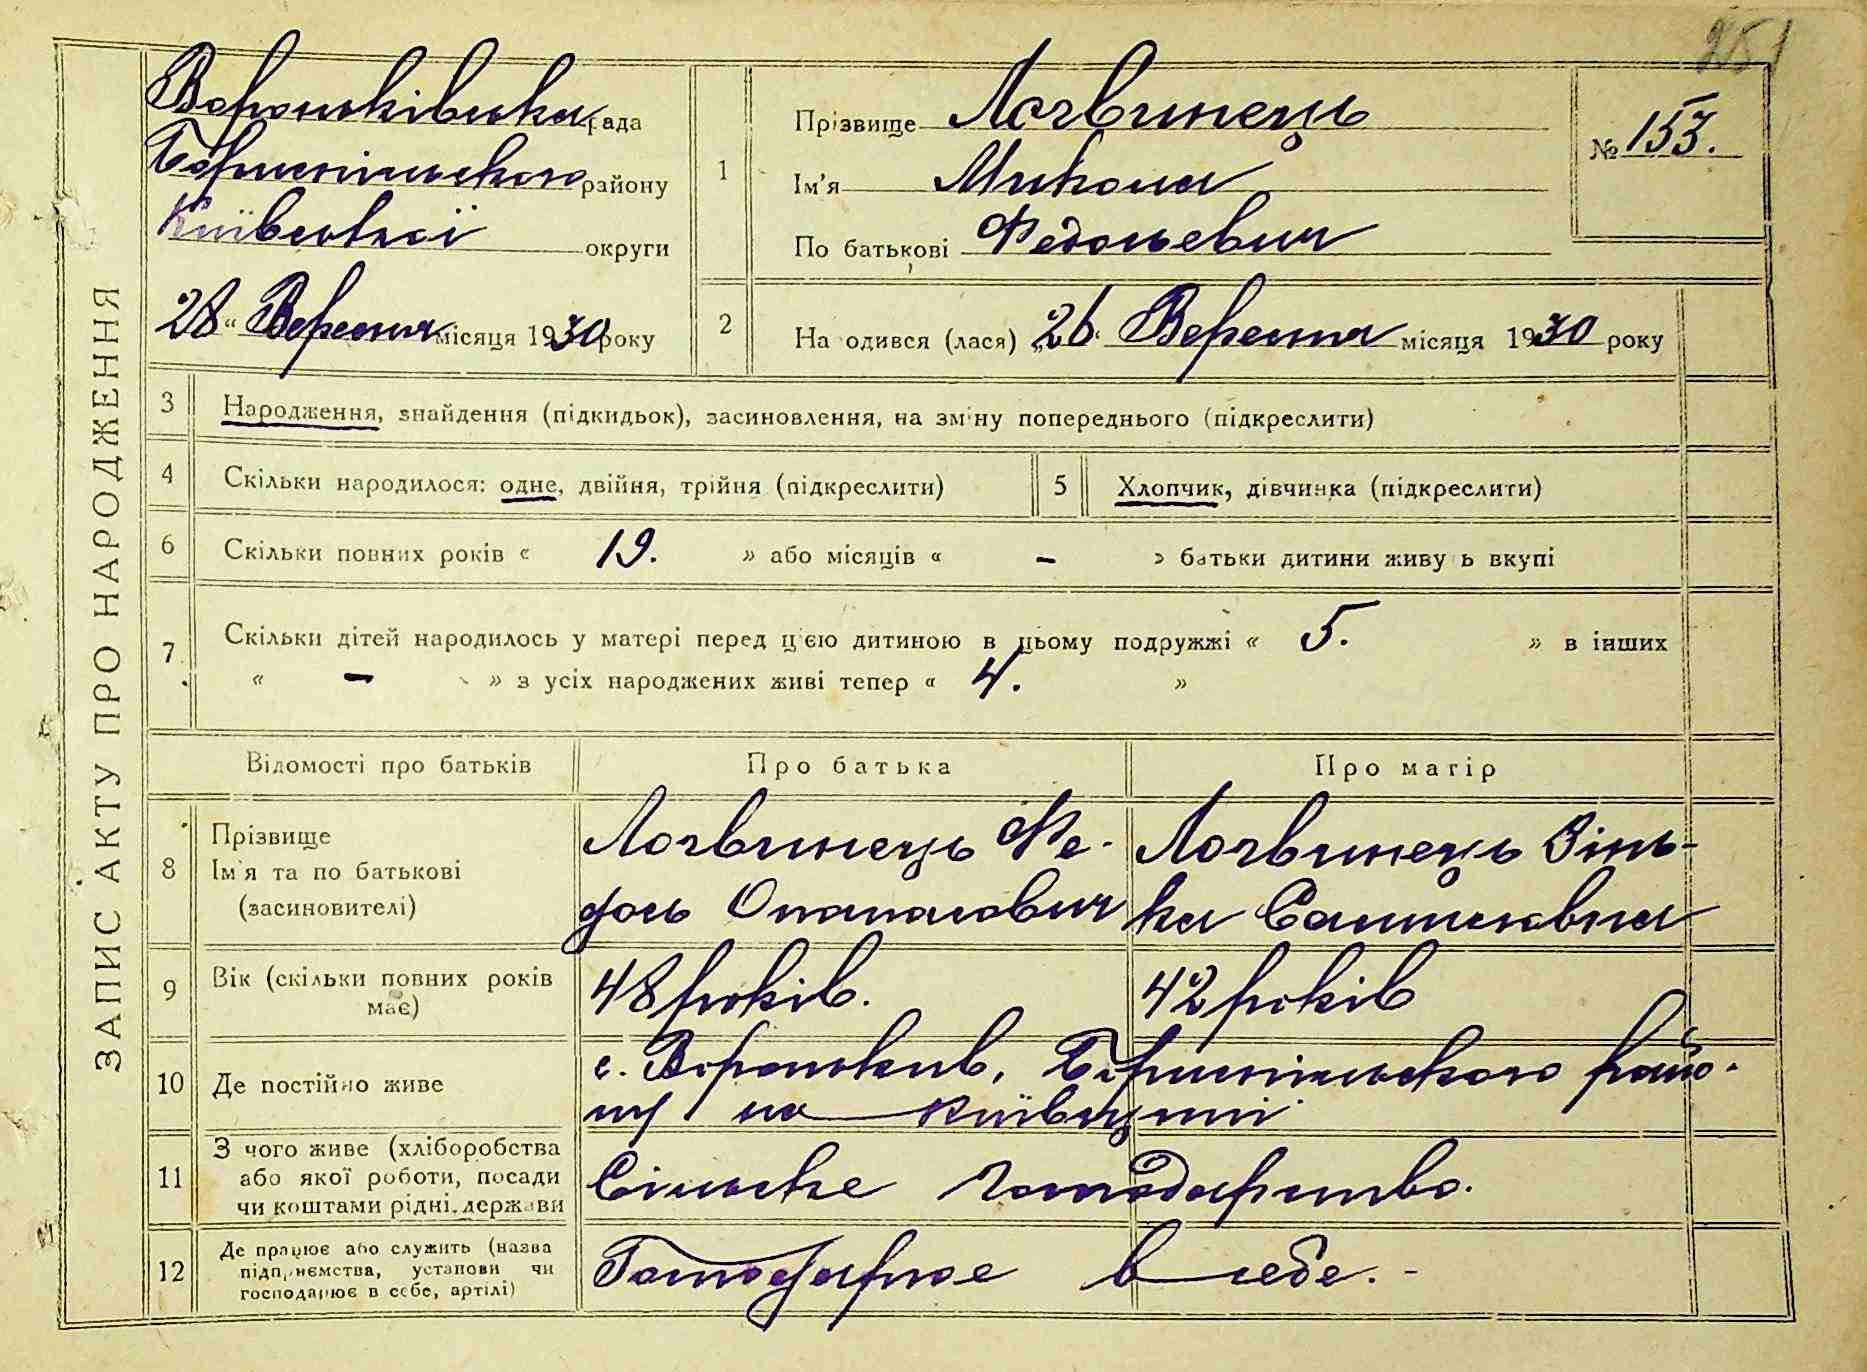 251
ЗАПИС АКТУ ПРО НАРОДЖЕННЯ
Вороньківська рада
Бориспільського району
Київської округи
28 " Вересня місяця 1930 року
1
Прізвище Логвинець
Ім'я Микола
По батькові Федосьевич
№ 153.
2
На одився (лася) „26" Вересня місяця 1930 року
3 Народження, знайдення (підкидьок), засиновлення, на зміну попереднього (підкреслити)
4 Скільки народилося: одне, двійня, трійня (підкреслити)
5 Хлопчик, дівчинка (підкреслити)
6 Скільки повних років « 19. » або місяців « – » батьки дитини живу ь вкупі
7 Скільки дітей народилось у матері перед цією дитиною в цьому подружжі « 5. » в інших
« – » з усіх народжених живі тепер « 4. »
Відомості про батьків Про батька Про матір
8 Прізвище
Ім'я та по батькові
(засиновителі)
Логвинець Фе-
дось Опанасович
Логвинець Зінь-
ка
9 Вік (скільки повних років
має)
48 років. 42 років
10 Де постійно живе
с. Вороньків, Бориспільського райо-
ну на Київщині
11 З чого живе (хліборобства
або якої роботи, посади
чи коштами рідні, держави
Сільське господарство.
12 Де працює або служить (назва
підприємства, установи чи
господарює в себе, артілі)
Господарює в себе. -